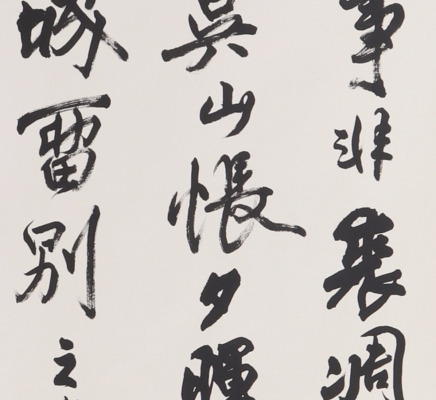 事非裘凋
吳山悵夕暉
城留別之